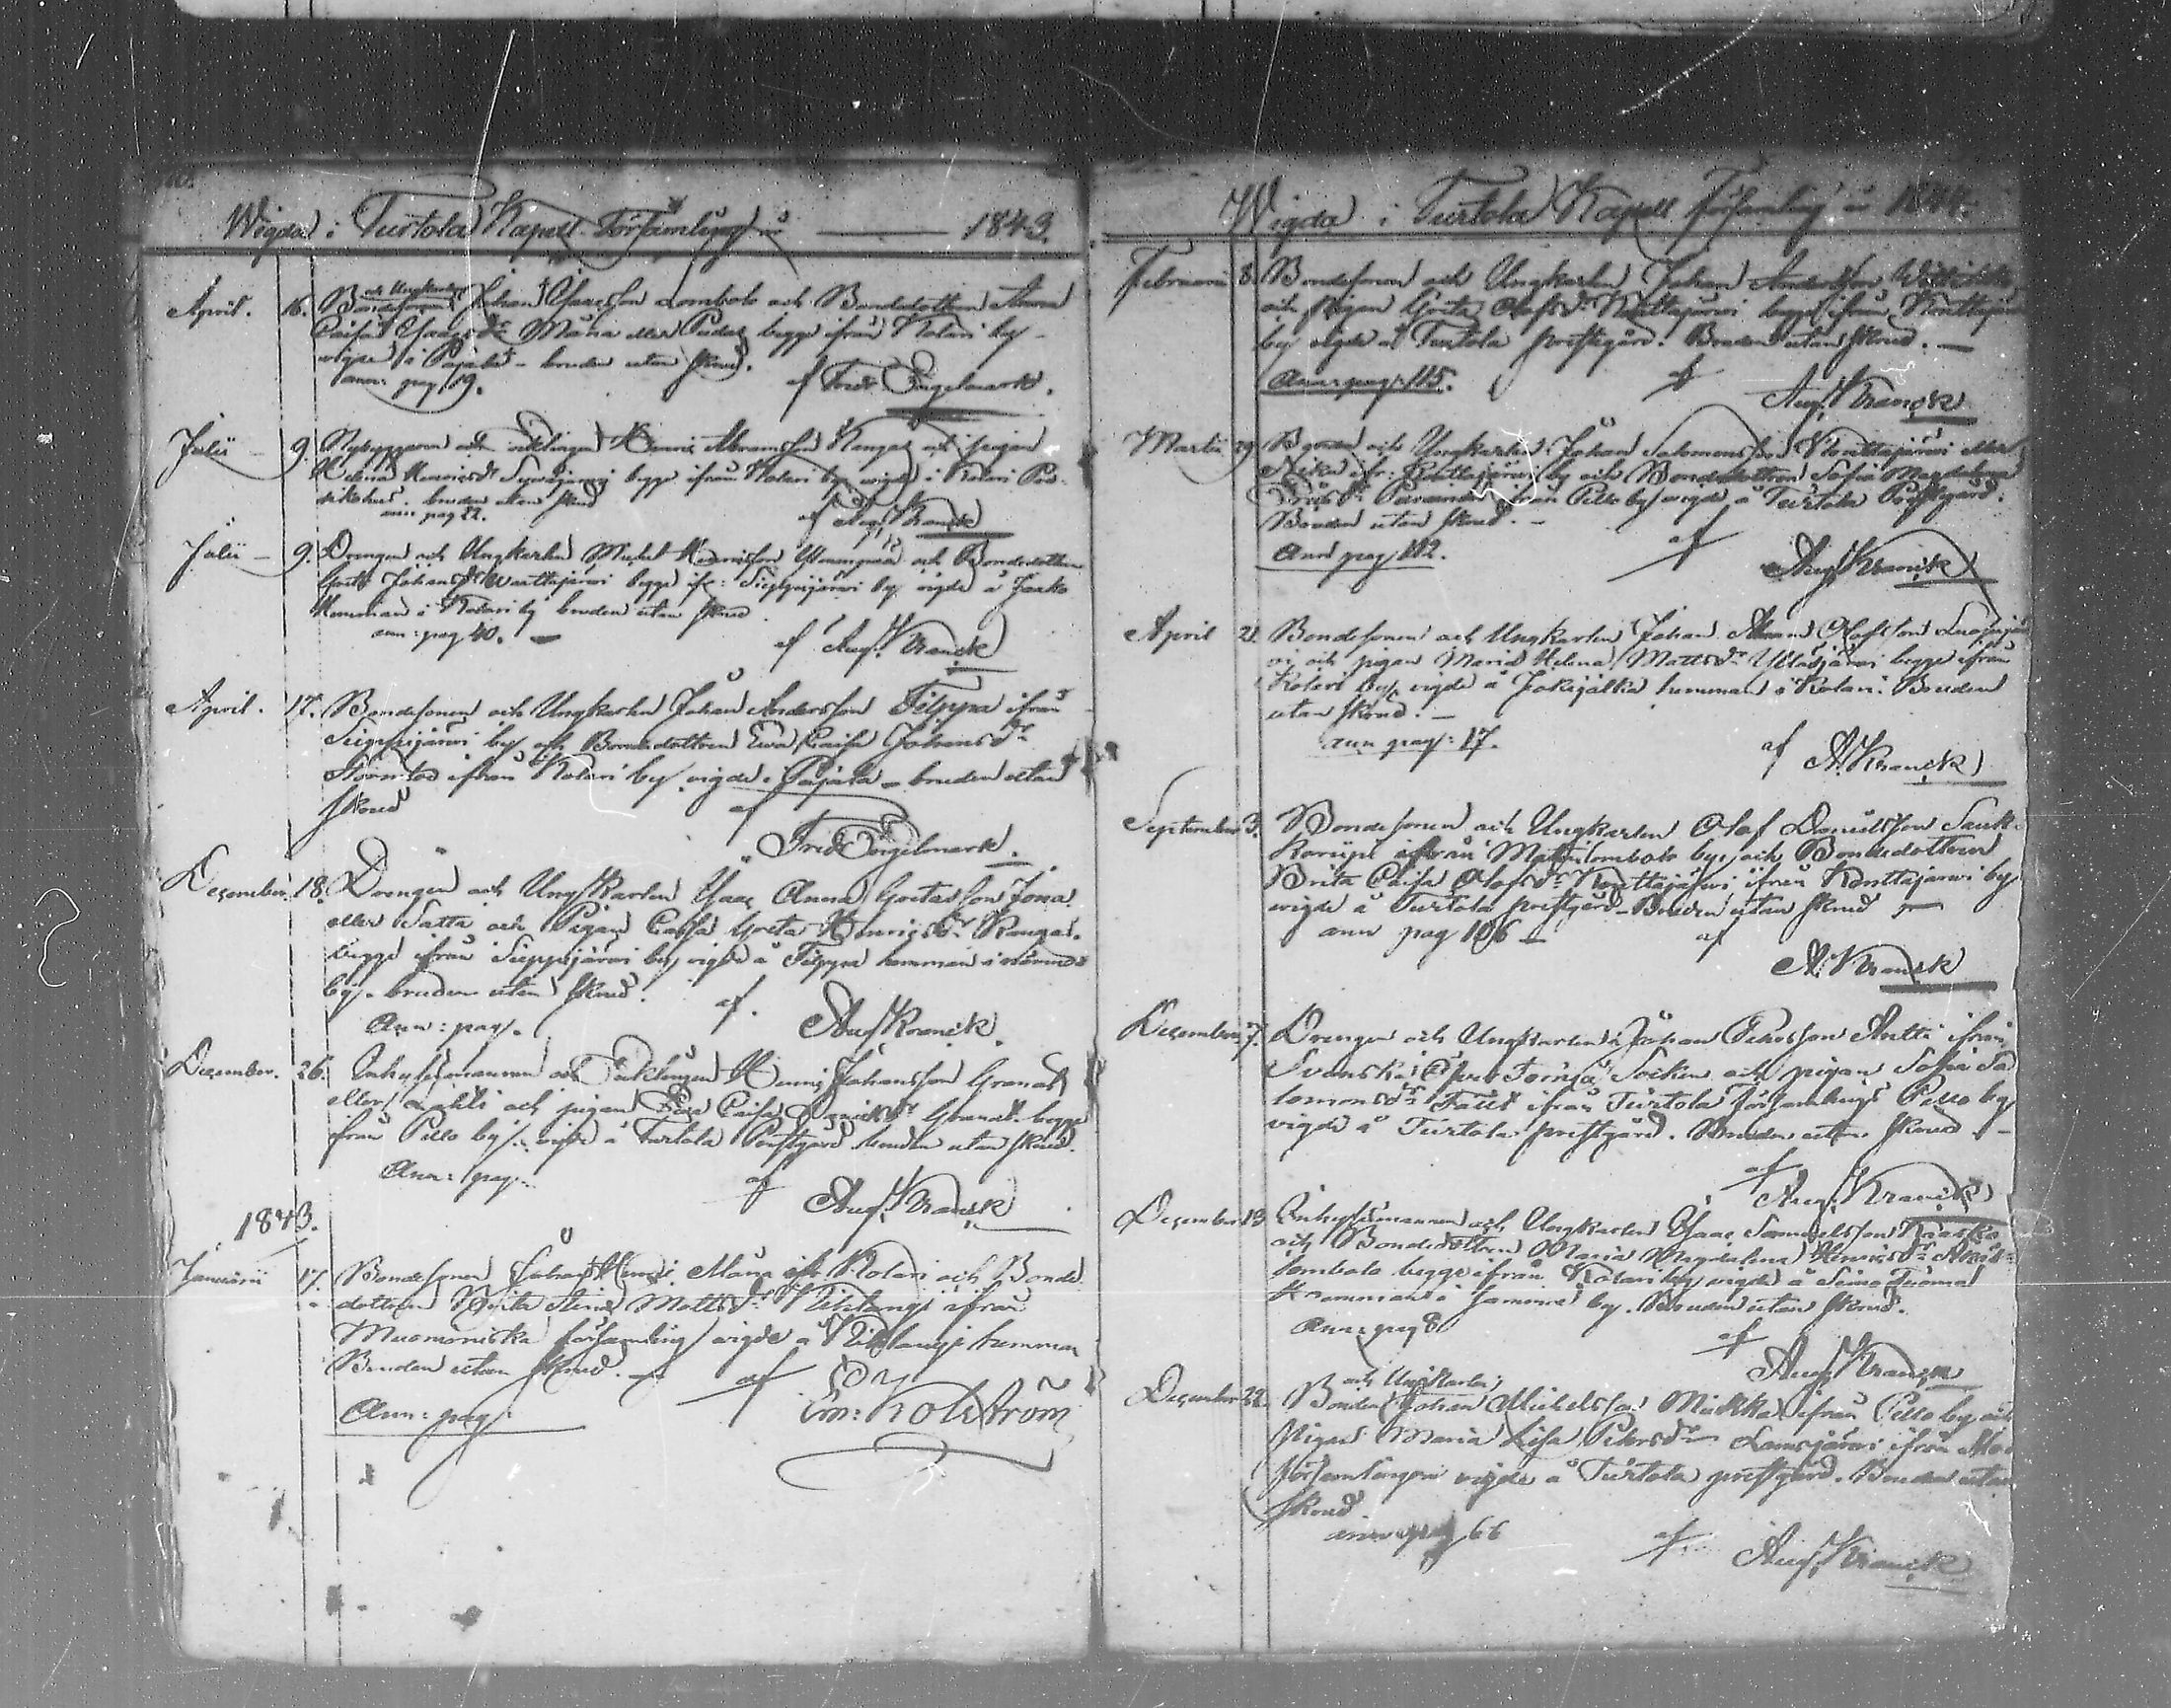 Wigda i Turtola Kapell Församling år 1843.
April. 16. Bondesonen och Ungkarlen Johan Isaacsson Lombolo och Bondedottren Anna
Caisa Isaacsdr Maúna eller Pudas begge ifrån Kolari by
vigde i Pajala - bruden utan skrud.
ann: pag 19. af Fredr Engelmark.
Julii - 9. Nybyggaren och enklingen Henric Abramsson Kangas och pigan
Helena Henricsdr begge ifrån Kolari by vigde i Kolari Pre-
dikohus. bruden utan skrud
ann: pag 22. af Aug. Kranck
Julii - 9. Drengen och Ungkarlen Michel Henricsson och Bondedottren
Greta Johansdr Wanttajärvi begge ifr: Sieppijärvi by vigde å Jaako
Hemman i Kolari by bruden utan skrud.
ann: pag 40. - af Aug. Kranck
April. 17. Bondesonen och Ungkarlen Johan Andersson Filppa ifrån
Sieppijärvi by och Bondedottren Ewa Caisa Johansdr
ifrån Kolari by vigde i Pajala - bruden utan
skrud af
Fredr Engelmark.
December. 18. Drengen och Ungkarlen Isaac Anna Gretasson Jona
eller Satta och Pigan Caisa Greta Henricsdr Kangas.
begge ifrån Sieppijärvi by vigde å Filppa hemman i nämnde
by. bruden utan skrud. af.
Ann: pag. Aug Kranck.
December. 26. Inhysesmannen och Enklingen Henric Johansson Granat
eller Lahti och pigan Caisa Granat begge
ifrån Pello by vigde å Turtola Prestgård bruden utan skrud.
Ann: pag: af
Aug. Kranck
1843.
Januarii 17. Bondesonen Johan Maúna ifr Kolari och Bonde
dottren Brita Stina Mattsdr Kihlangi ifrån
Muonioniska församling vigde å Kihlangi hemman
Bruden utan skrud. af
Ann: pag: Em: Kolström
Wigda i Turtola Kapell församling år 1844.
Februarii 8. Bondesonen och Ungkarlen Johan Andersson
och pigan Greta Olofsdr Konttajärvi begge ifrån Konttajärvi
by vigde å Turtola prestgård. Bruden utan skrud. -
Ann: pag: 115. af
Aug. Kranck
Martii 29. Bonden och Ungkarlen Johan Salomonsson Konttajärvi eller
ifr: Konttajärvi by och Bondedottren Sofia Magdalena
från Pello by vigde å Turtola Prestgård.
Bruden utan skrud. -
Ann pag 112. af
Aug Kranck
April 21. Bondesonen och Ungkarlen Johan Abram Olofsson
och pigan Maria Helena Mattsdr Ylläsjärvi begge ifrån
Kolari by vigde å Jokijalka hemman i Kolari. Bruden
utan skrud. -
ann pag: 17. af
A. Kranck
September 3. Bondesonen och Ungkarlen Olof Danielsson Sauk-
koriipi ifrån by och Bondedottren
Brita Caisa Olofsdr Konttajärvi ifrån Konttajärvi by
vigde å Turtola prestgård - Bruden utan skrud
ann pag 106 - af
A. Kranck
December 7. Drengen och Ungkarlen Johan Pehrsson Antti ifrån
Svenska Öfver Torneå Socken och pigan Sofia Sa
lomonsdr Fält ifrån Turtola Församlings Pello by
vigde å Turtola prestgård. Bruden utan skrud -
af
Aug. Kranck
December 13 Inhysesmannen och Ungkarlen Isaac Samuelsson
och Bondedottren Maria Magdalena Henricsdr
lombolo begge ifrån Kolari by vigde å Simo Tuomas
Hemman i samme by. Bruden utan skrud.
Ann: pag 8 af
Aug. Kranck
December 22. Bonden och Ungkarlen Johan Michelsson Miukka ifrån Pello by och
Pigan Maria Lisa Pehrsdr Lampsjärvi ifrån
församlingen vigde å Turtola prestgård. Bruden utan
skrud
ann pag 66 af
Aug. Kranck